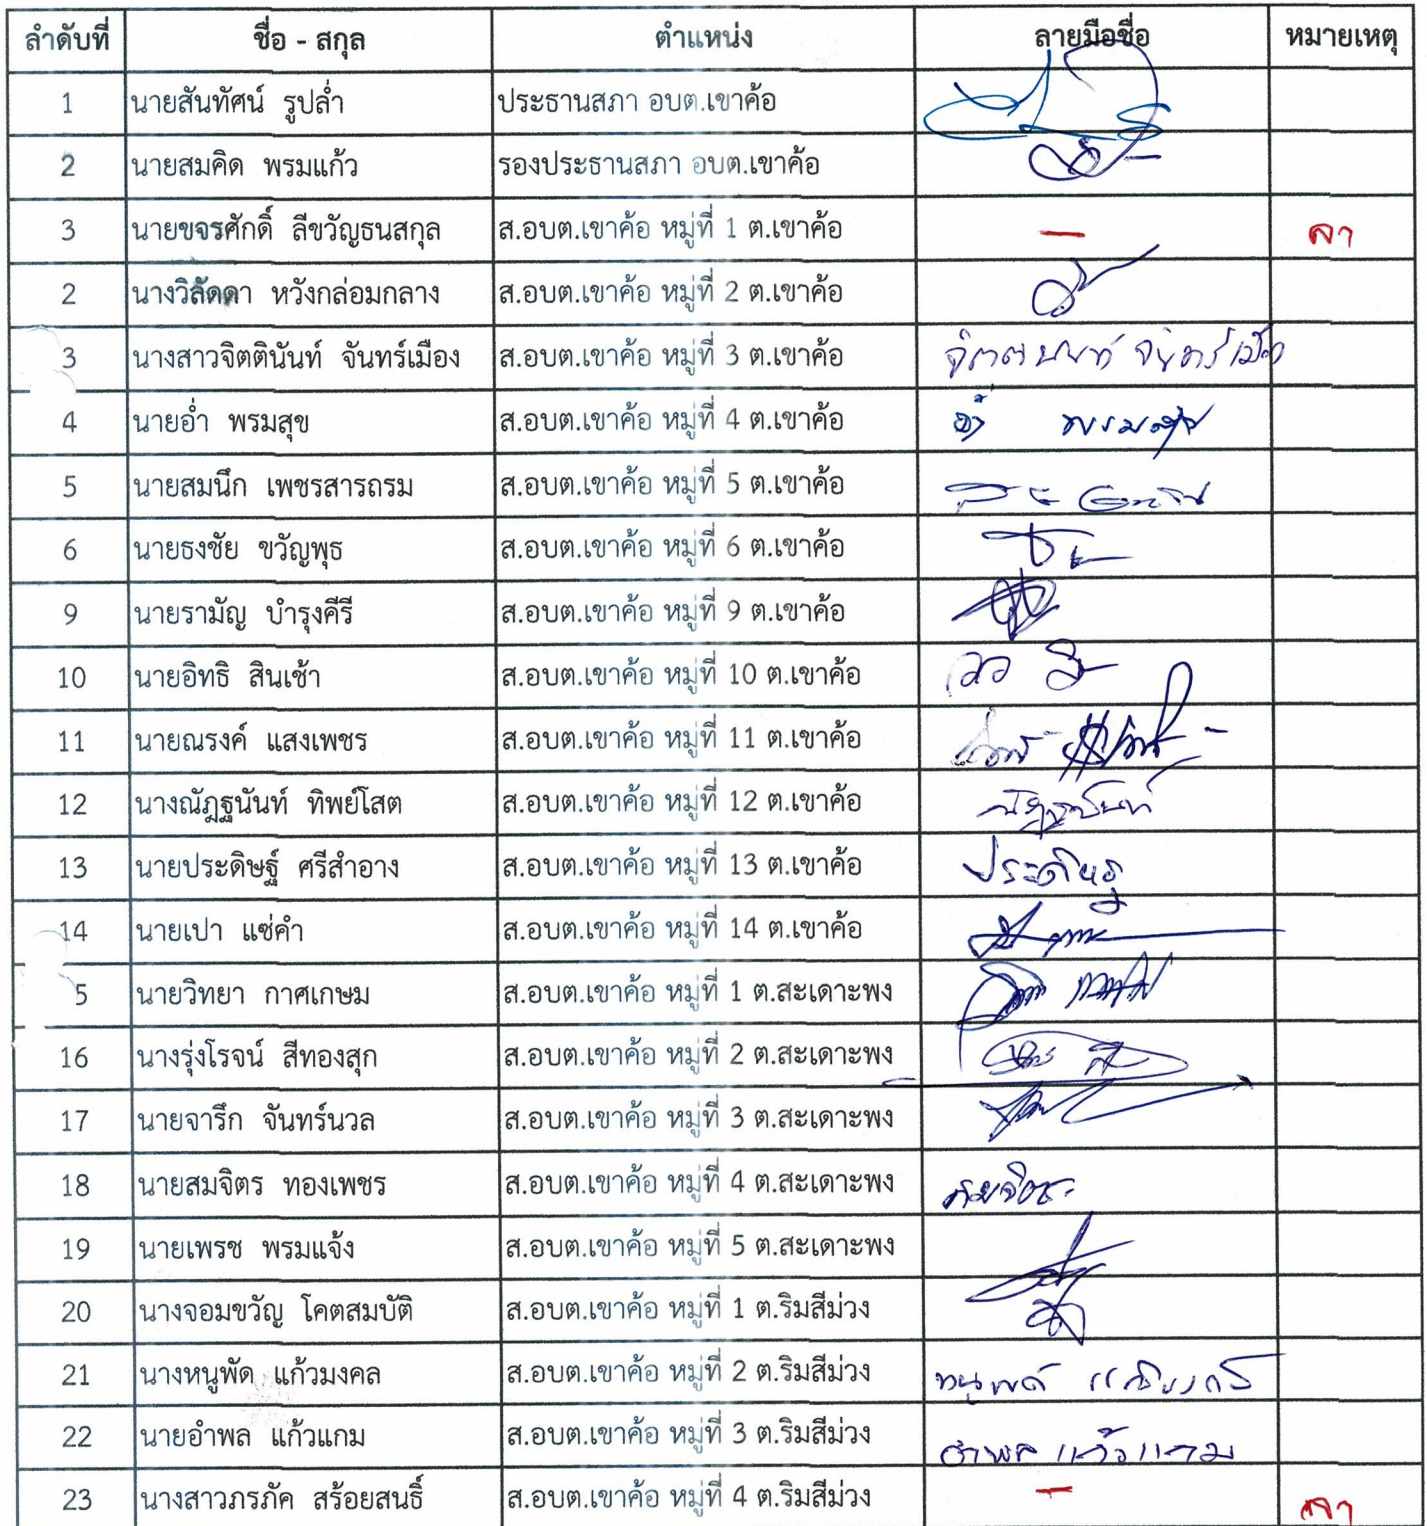 ลำดับที่ ชื่อ - สกุล ตำแหน่ง ลายมือชื่อ หมายเหตุ
1 นายสันทัศน์ รูปล่ำ ประธานสภา อบต.เขาค้อ
2 นายสมคิด พรมแก้ว รองประธานสภา อบต.เขาค้อ
3 นายขจรศักดิ์ ลีขวัญธนสกุล ส.อบต.เขาค้อ หมู่ที่ 1 ต.เขาค้อ - ลา
2 นางวิลัดดา หวังกล่อมกลาง ส.อบต.เขาค้อ หมู่ที่ 2 ต.เขาค้อ
3 นางสาวจิตตินันท์ จันทร์เมือง ส.อบต.เขาค้อ หมู่ที่ 3 ต.เขาค้อ จิตตินันท์ จันทร์เมือง
4 นายอ่ำ พรมสุข ส.อบต.เขาค้อ หมู่ที่ 4 ต.เขาค้อ อ่ำ พรมสุข
5 นายสมนึก เพชรสารถรม ส.อบต.เขาค้อ หมู่ที่ 5 ต.เขาค้อ
6 นายธงชัย ขวัญพุธ ส.อบต.เขาค้อ หมู่ที่ 6 ต.เขาค้อ
9 นายรามัญ บำรุงคีรี ส.อบต.เขาค้อ หมู่ที่ 9 ต.เขาค้อ
10 นายอิทธิ สินเช้า ส.อบต.เขาค้อ หมู่ที่ 10 ต.เขาค้อ
11 นายณรงค์ แสงเพชร ส.อบต.เขาค้อ หมู่ที่ 11 ต.เขาค้อ
12 นางณัฎฐนันท์ ทิพย์โสต ส.อบต.เขาค้อ หมู่ที่ 12 ต.เขาค้อ ณัฎฐนันท์
13 นายประดิษฐ์ ศรีสำอาง ส.อบต.เขาค้อ หมู่ที่ 13 ต.เขาค้อ ประดิษฐ
14 นายเปา แซ่คำ ส.อบต.เขาค้อ หมู่ที่ 14 ต.เขาค้อ
5 นายวิทยา กาศเกษม ส.อบต.เขาค้อ หมู่ที่ 1 ต.สะเดาะพง
16 นางรุ่งโรจน์ สีทองสุก ส.อบต.เขาค้อ หมู่ที่ 2 ต.สะเดาะพง
17 นายจารึก จันทร์นวล ส.อบต.เขาค้อ หมู่ที่ 3 ต.สะเดาะพง
18 นายสมจิตร ทองเพชร ส.อบต.เขาค้อ หมู่ที่ 4 ต.สะเดาะพง สมจิตร
19 นายเพรช พรมแจ้ง ส.อบต.เขาค้อ หมู่ที่ 5 ต.สะเดาะพง
20 นางจอมขวัญ โคตสมบัติ ส.อบต.เขาค้อ หมู่ที่ 1 ต.ริมสีม่วง
21 นางหนูพัด แก้วมงคล ส.อบต.เขาค้อ หมู่ที่ 2 ต.ริมสีม่วง หนูพัด
22 นายอำพล แก้วแกม ส.อบต.เขาค้อ หมู่ที่ 3 ต.ริมสีม่วง อำพล แก้วแกม
23 นางสาวภรภัค สร้อยสนธิ์ ส.อบต.เขาค้อ หมู่ที่ 4 ต.ริมสีม่วง - ลา